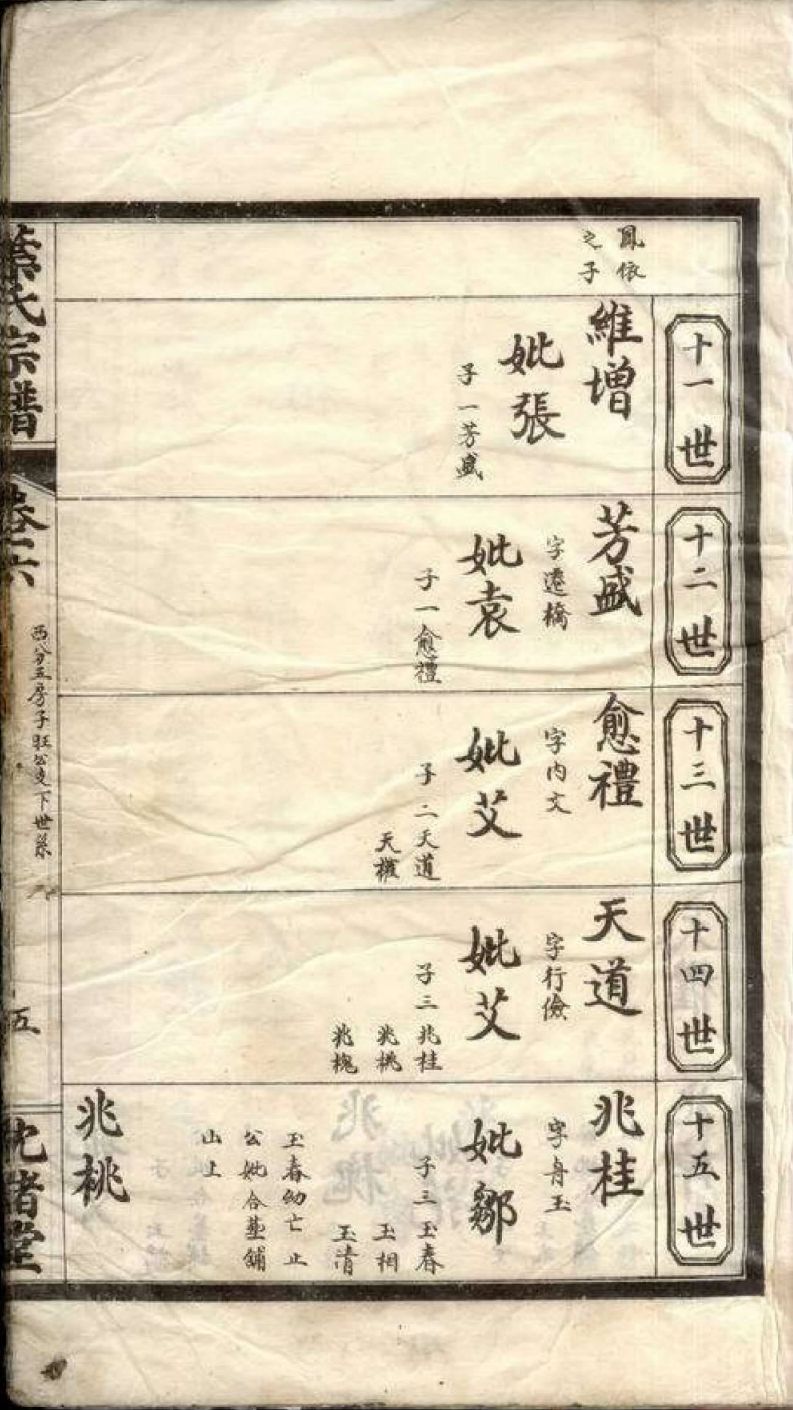 鳳依
之子
十一世
維增
妣張
子一芳盛
十二世
芳盛
字遷橋
妣袁
子一愈禮
十三世
愈禮
字内文
妣艾
子二天道
天權
十四世
天道
字行儉
妣艾
子三兆桂
兆桃
兆槐
十五世
兆桂
字舟玉
妣鄒
子三玉春
玉相
玉清
玉春幼亡止
公妣合墓鋪
山上
兆桃
葉氏宗譜
卷六
西分五房子旺公支下世系
五
堂